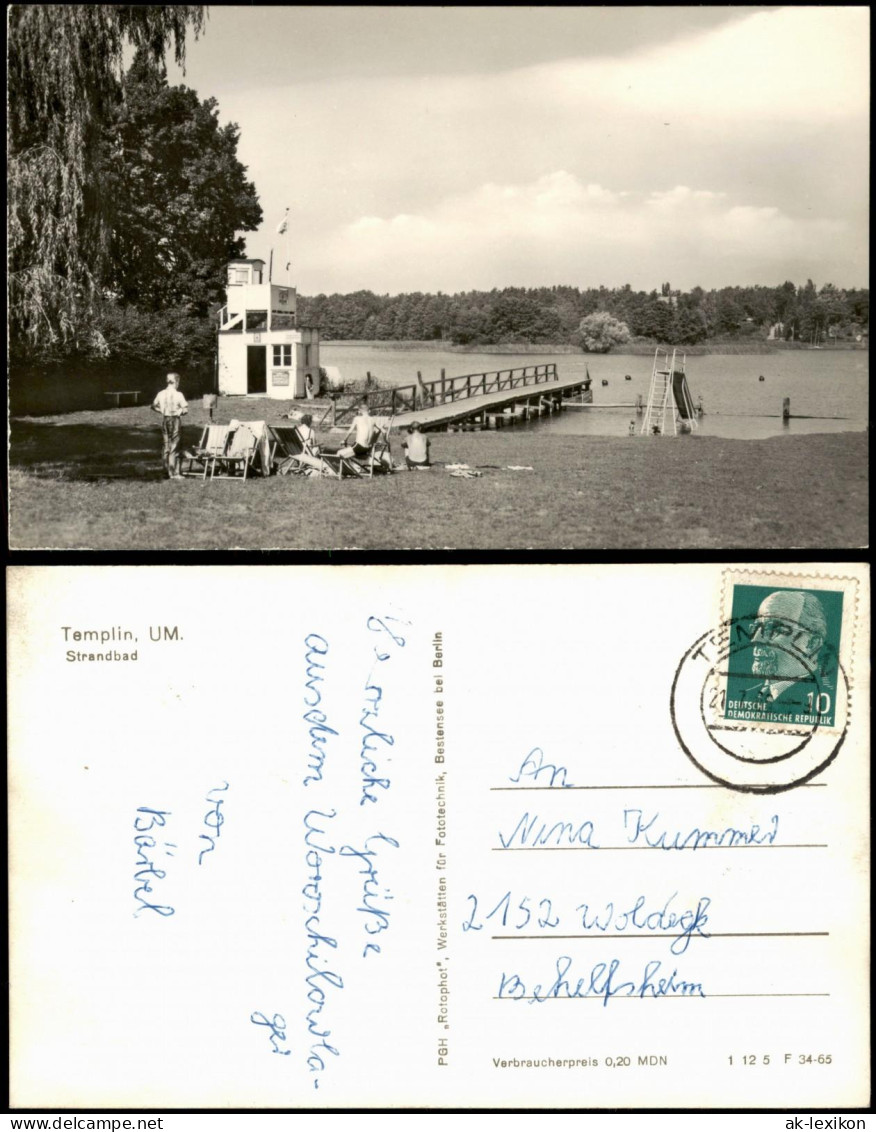 Templin, UM.
Strandbad
Herzliche Grüße
aus dem Woroschilowla-
ger
von
Bärbel
PGH „Rotophot", Werkstätten für Fototechnik, Bestensee bei Berlin
TEMPLIN
DEUTSCHE
DEMOKRATISCHE REPUBLIK
10
An
Nina Kummer
2152 Woldegk
Behelfsheim
Verbraucherpreis 0,20 MDN 1 12 5 F 34-65
ak-lexikon